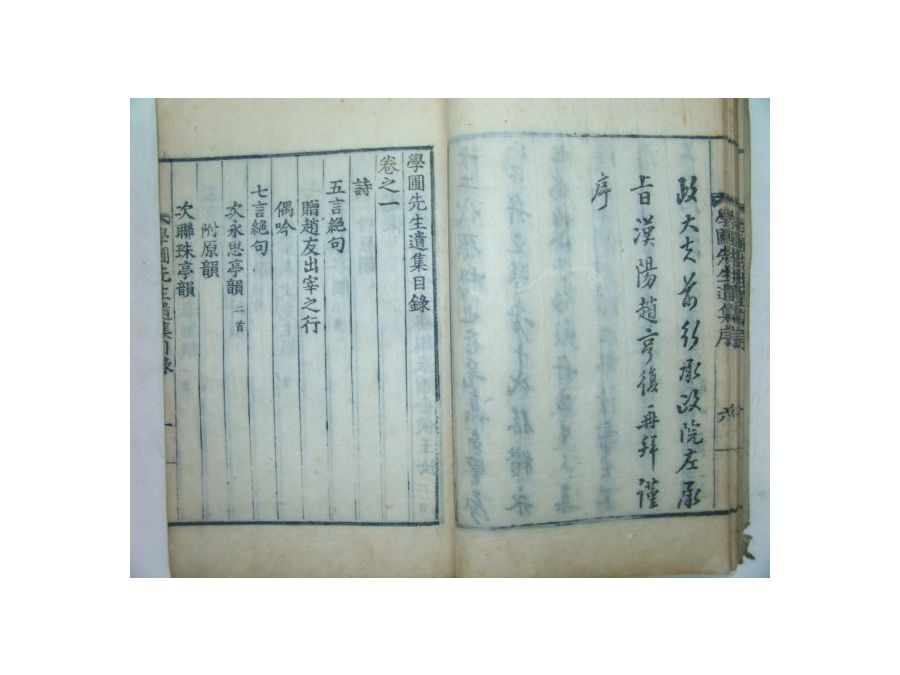 學圃先生遺集序
六
政大夫前行承政院左承
旨漢陽趙亨復再拜謹
序
學圃先生遺集目錄
卷之一
詩
五言絶句
贈趙友出宰之行
偶吟
七言絶句
次永思亭韻 二首
附原韻
次聯珠亭韻
學圃先生遺集目錄
一